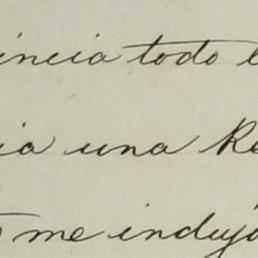 incia todo e
ia una Re
me indujo